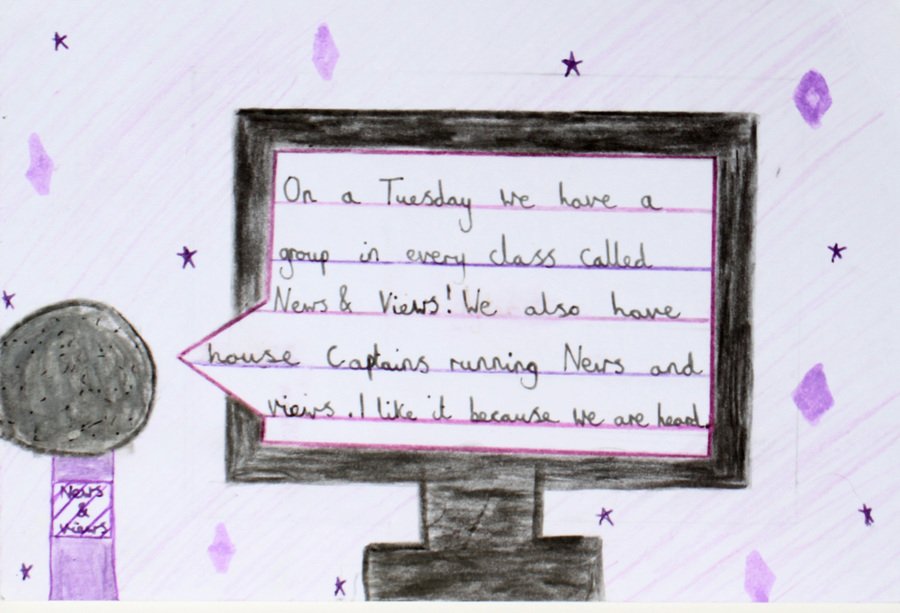 On a Tuesday we have a
group in every class called
News & Views! We also have
house Captains running News and
views. I like it because we are heard.
News
&
views